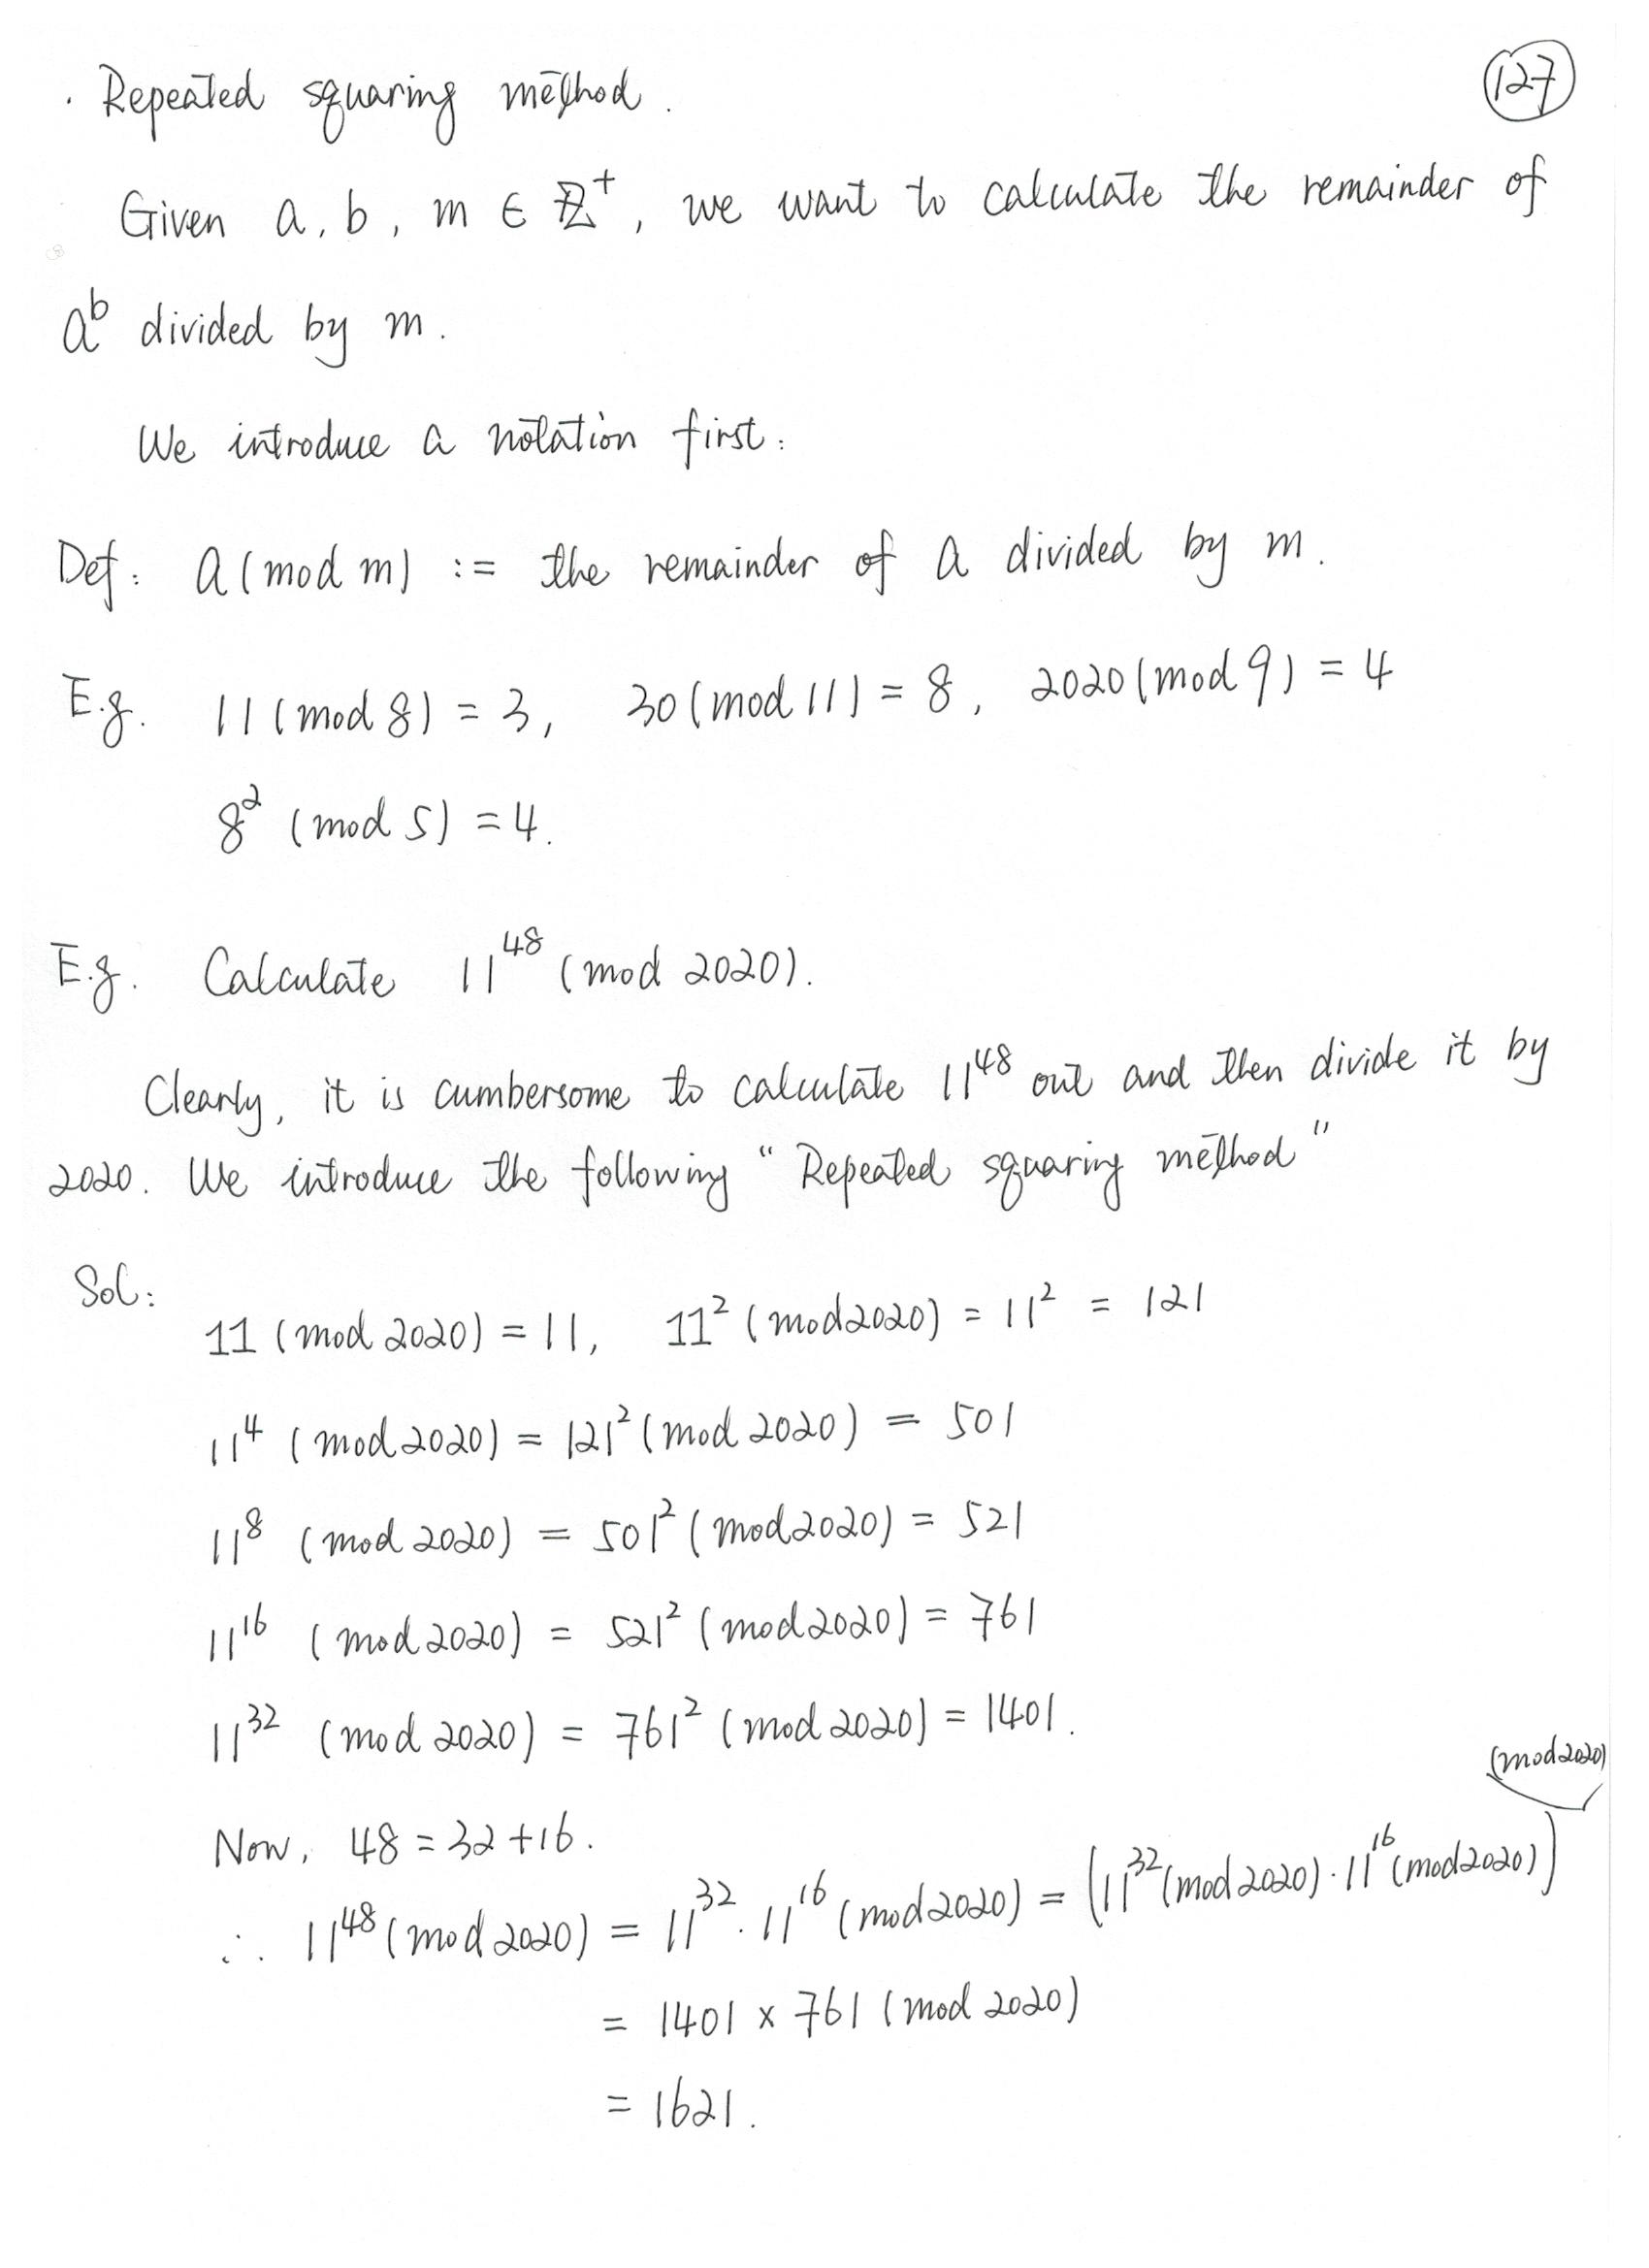 · Repeated squaring method. (127)
Given a, b, m ∈ ℤ⁺, we want to calculate the remainder of
aᵇ divided by m.
We introduce a notation first:
Def: a(mod m) := the remainder of a divided by m.
E.g. 11(mod 8) = 3, 30(mod 11) = 8, 2020(mod 9) = 4
8² (mod 5) = 4.
E.g. Calculate 11⁴⁸ (mod 2020).
Clearly, it is cumbersome to calculate 11⁴⁸ out and then divide it by
2020. We introduce the following "Repeated squaring method"
Sol:
11 (mod 2020) = 11, 11² (mod 2020) = 11² = 121
11⁴ (mod 2020) = 121² (mod 2020) = 501
11⁸ (mod 2020) = 501² (mod 2020) = 521
11¹⁶ (mod 2020) = 521² (mod 2020) = 761
11³² (mod 2020) = 761² (mod 2020) = 1401.
Now, 48 = 32 + 16.
∴ 11⁴⁸ (mod 2020) = 11³² · 11¹⁶ (mod 2020) = (11³² (mod 2020) · 11¹⁶ (mod 2020)) (mod 2020)
= 1401 × 761 (mod 2020)
= 1621.